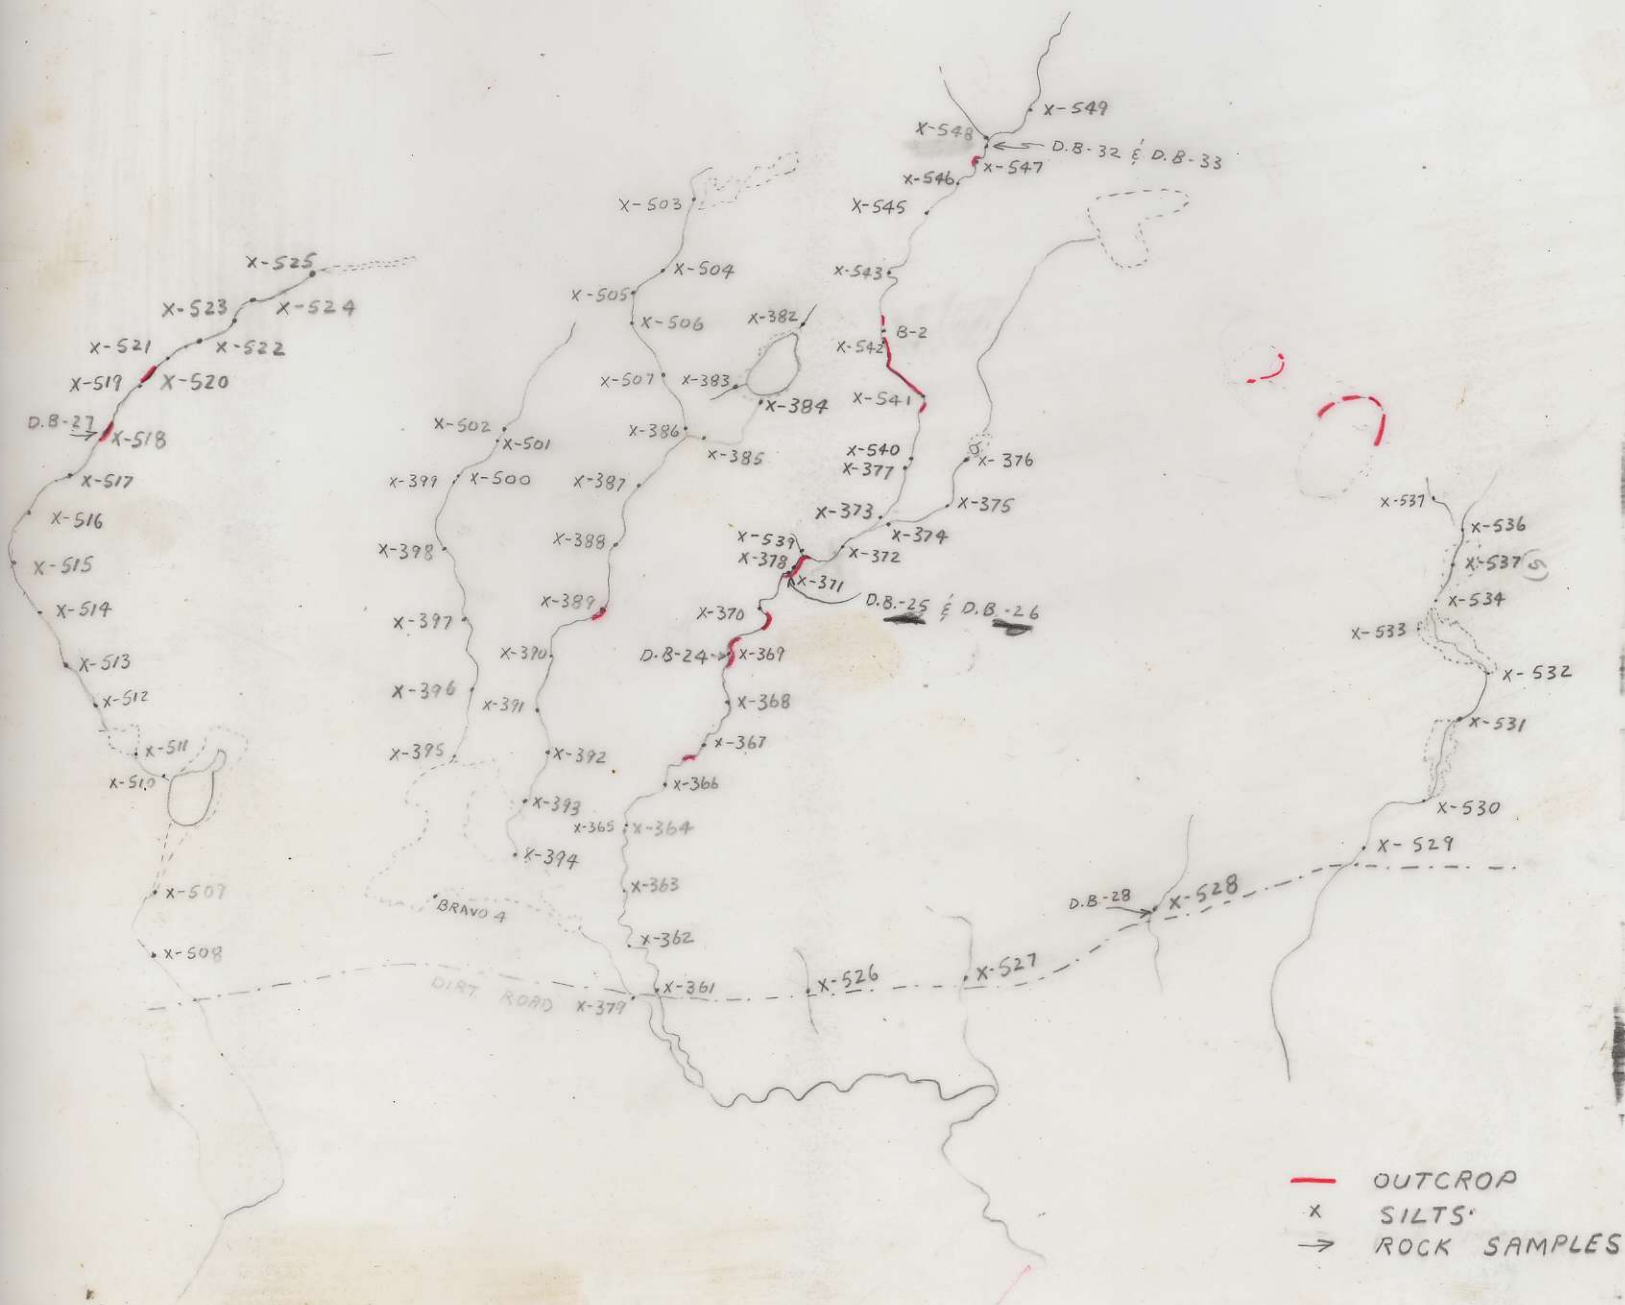 X-549
X-548
D.B-32 & D.B-33
X-547
X-546
X-503
X-545
X-525
X-504
X-543
X-505
X-523
X-524
X-506
X-382
B-2
X-521
X-522
X-542
X-519
X-520
X-507
X-383
X-541
X-384
D.B-27
X-518
X-502
X-501
X-386
X-385
X-540
X-377
X-376
X-517
X-399
X-500
X-387
X-375
X-537
X-516
X-373
X-374
X-536
X-398
X-388
X-539
X-378
X-372
X-371
X-515
X-537(5)
X-514
X-389
X-370
D.B.-25 & D.B.-26
X-534
X-397
X-533
X-513
X-390
D.B-24
X-369
X-532
X-512
X-396
X-391
X-368
X-511
X-395
X-392
X-367
X-531
X-510
X-366
X-393
X-365
X-364
X-530
X-394
X-529
X-509
BRAVO 4
X-363
D.B-28
X-528
X-508
X-362
DIRT ROAD
X-379
X-361
X-526
X-527
OUTCROP
X SILTS
ROCK SAMPLES